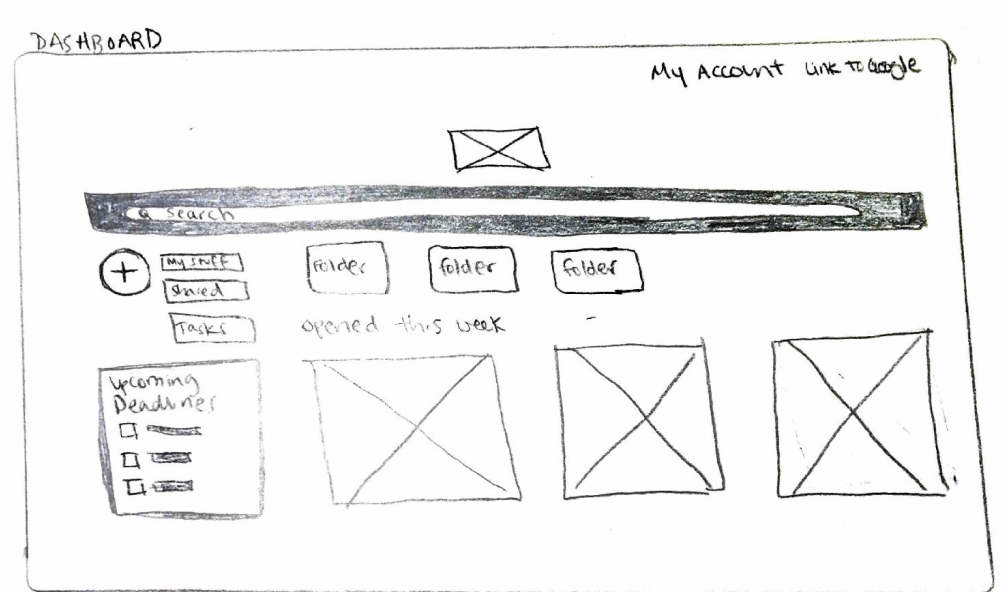 DASHBOARD
My Account Link to Google
search
My Stuff
Shared
Tasks
Folder
folder
folder
opened this week
Upcoming
Deadlines